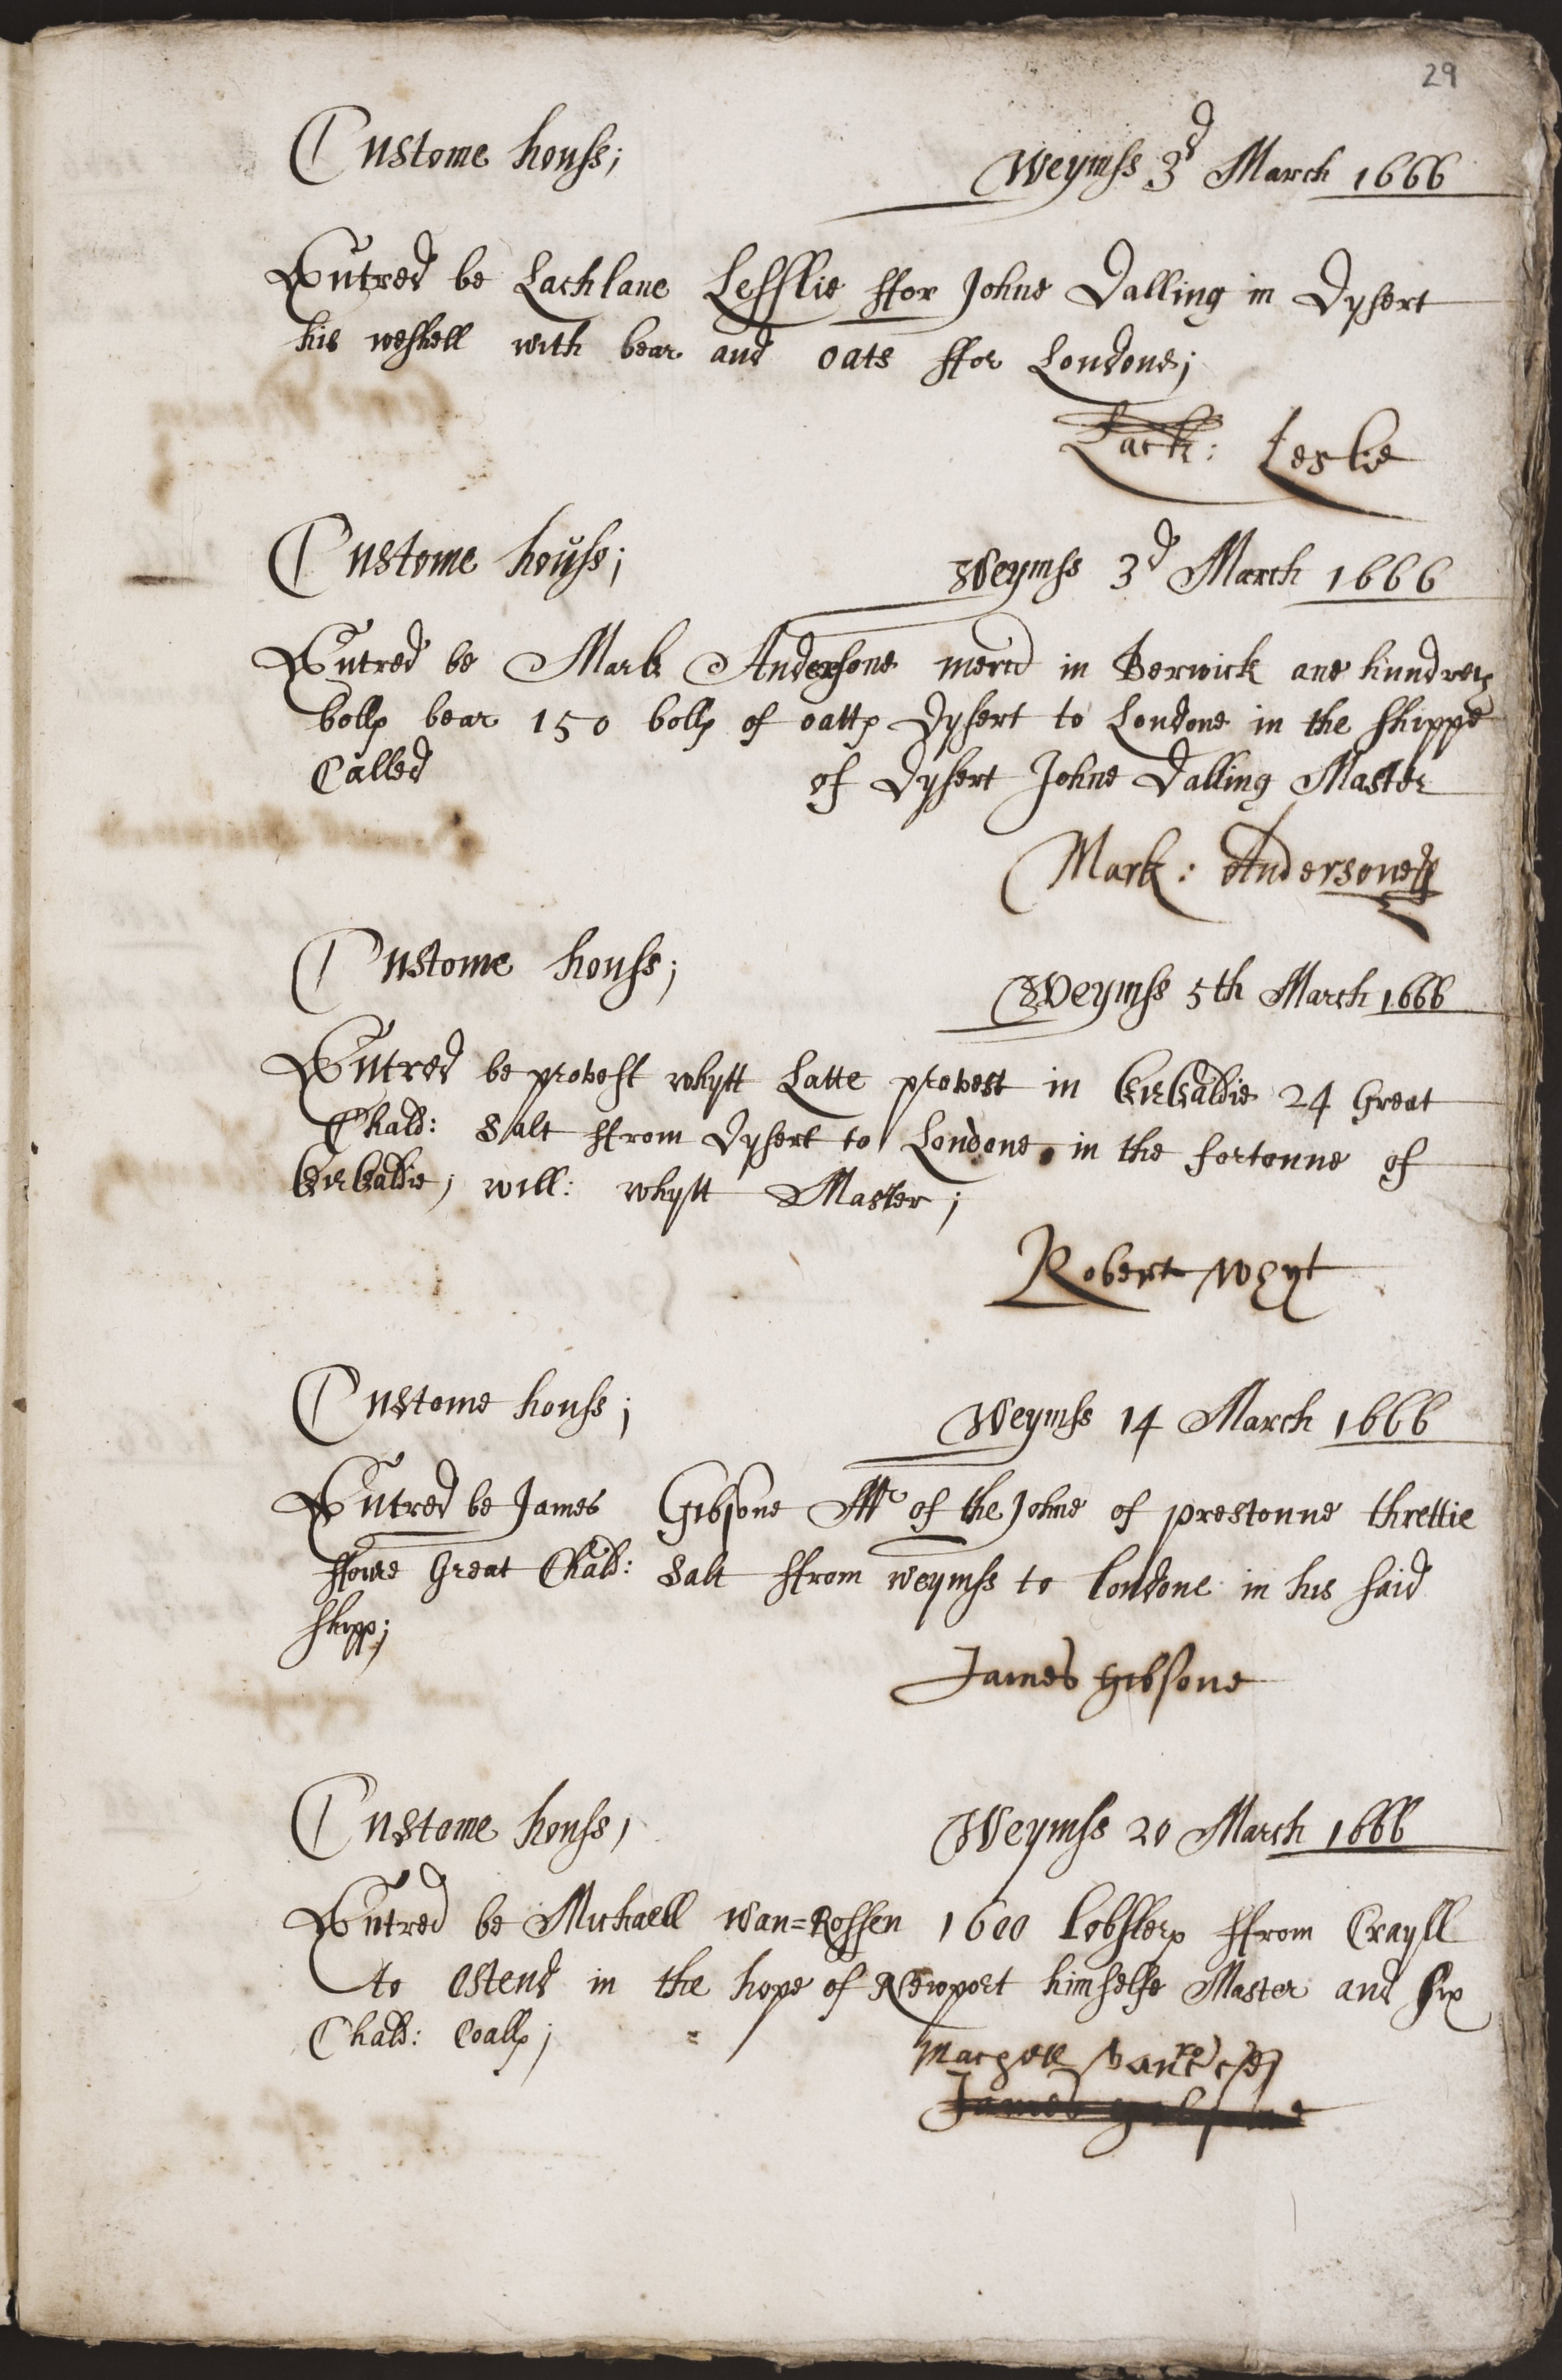 29
Custome houss; Weymss 3d March 1666
Entred be Lachlane Lesslie ffor Johne Dalling in Dysert
his weshell with bear and oats ffor Londone;
Lach: Leslie
Custome houss; Weymss 3d March 1666
Entred be Mark Andersone mercd in Berwick ane hundreth
bolls bear 150 bolls of oatts Dysert to Londone in the shippe
Called of Dysert Johne Dalling Master
Mark: Andersone
Custome houss; Weymss 5th March 1666
Entred be provest whytt Latte provest in Kirkaldie 24 Great
Chald: Salt ffrom Dysert to Londone in the fortoune of
Kirkaldie; will: whytt Master;
Robert Whyt
Custome houss; Weymss 14 March 1666
Entred be James Gibsone Mr of the Johne of prestoune threttie
ffoure Great Chald: Salt ffrom weymss to Londone in his said
shipp;
James Gibsone
Custome houss; Weymss 20 March 1666
Entred be Michaell Wan=Rossen 1600 lobsters ffrom Crayll
to Ostend in the hope of Newport himselfe Master and six
Chald: Coalls; =
James Gibsone